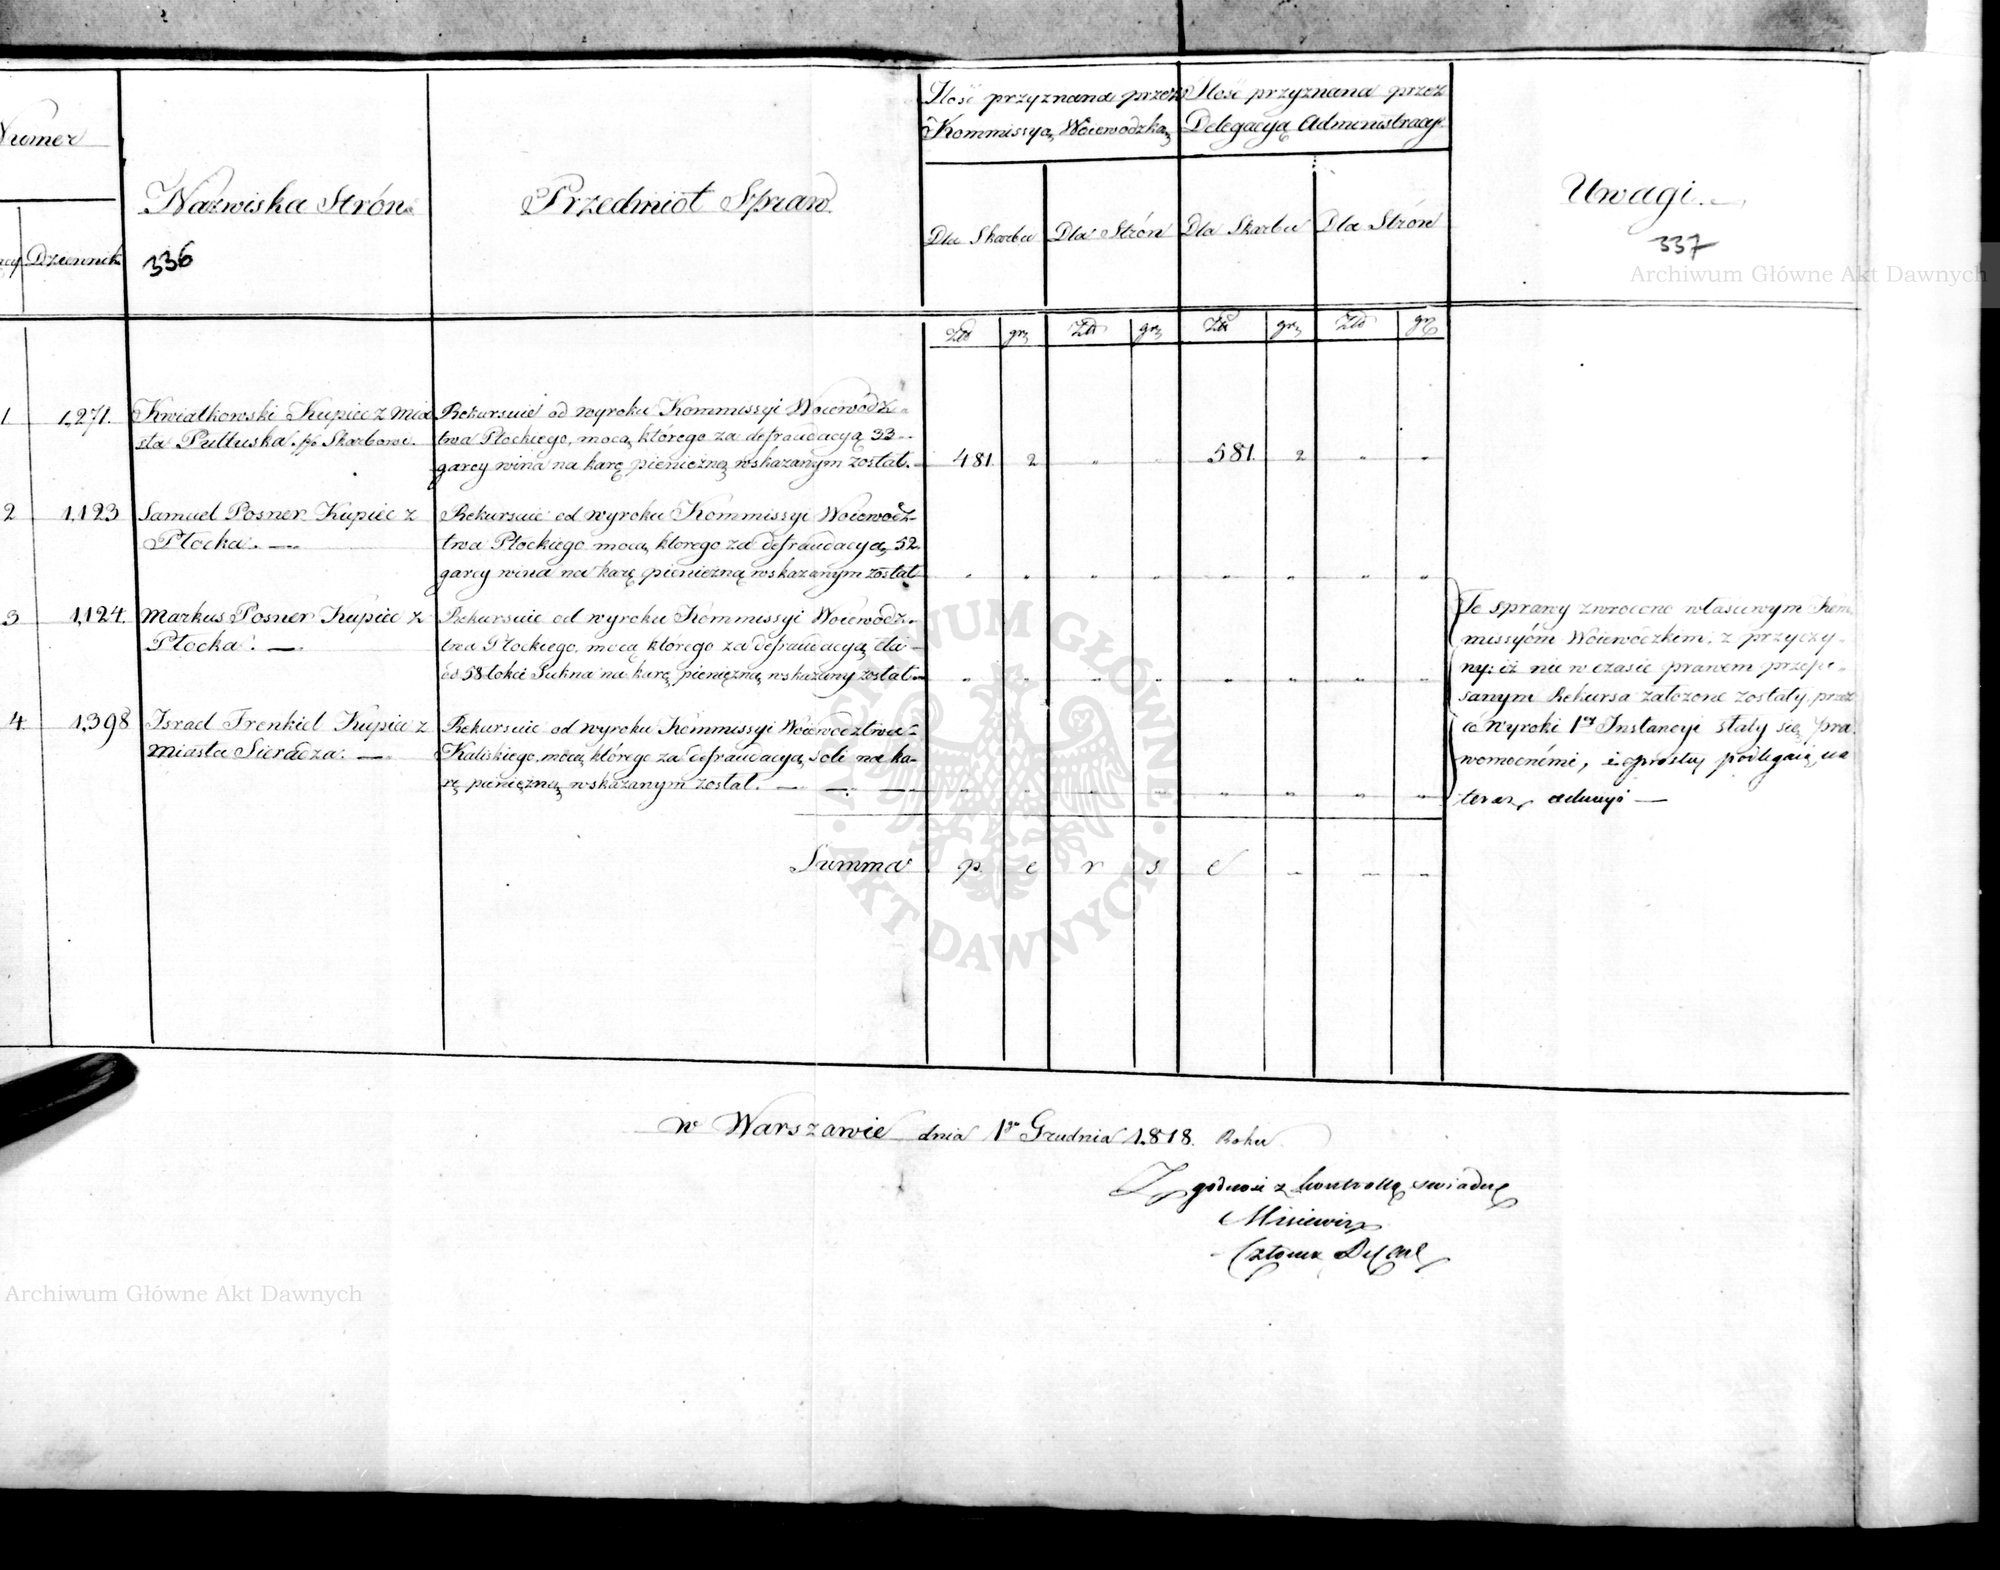 Numer
Nazwiska Strón
Przedmiot Spraw
Ilość przyznana przez
Kommissyą Woiewodzką
Ilość przyznana przez
Delegacyą Administracyi
Uwagi.
Dziennik
336
Dla Skarbu
Dla Strón
Dla Skarbu
Dla Strón
337
Archiwum Główne Akt Dawnych
Złt
grz
Złt
grz
Złt
grz
Złt
grz
1
1,271.
Kwiatkowski Kupiec z Mia
sta Pułtuska. Skarbowi.
Rekursuie od wyroku Kommissyi Woiewódz-
twa Płockiego, mocą którego za defraudacyą 33
garcy wina na karę pieniężną wskazanym został.
481
2
"
"
581.
2
"
"
2
1,123
Samuel Posner Kupiec z
Płocka. —
Rekursuie od wyroku Kommissyi Woiewodz-
twa Płockiego mocą ktorego za defraudacyą 52
garcy wina na karę pieniężną wskazanym został
" " " " " " " "
3
1,124.
Markus Posner Kupiec z
Płocka. —
Rekursuie od wyroku Kommissyi Woiewódz-
twa Płockiego, mocą którego za defraudacyą
58 łokci Sukna na karę pieniężną wskazany został
" " " " " " " "
4
1,398
Israel Frenkiel Kupiec z
Miasta Sieradza. —
Rekursuie od wyroku Kommissyi Woiewodztwa
Kaliskiego, mocą którego za defraudacyą soli na ka-
rę pieniężną wskazanym został. — — —
" " " " " " " "
Te sprawy zwrócone właściwym Kom
missyióm Woiewódzkim, z przyczy-
ny: iż nie w czasie prawem przepi-
sanym Rekursa założone zostały, przez
co Wyroki 1ey Instancyi stały się pra
womocnémi, podlegaią
teraz
Summa
p e r s e " " "
ARCHIWUM GŁÓWNE
AKT DAWNYCH
w Warszawie dnia 1go Grudnia 1818. Roku
Zgodność z kontrollą swiadczę
Członek
Archiwum Główne Akt Dawnych